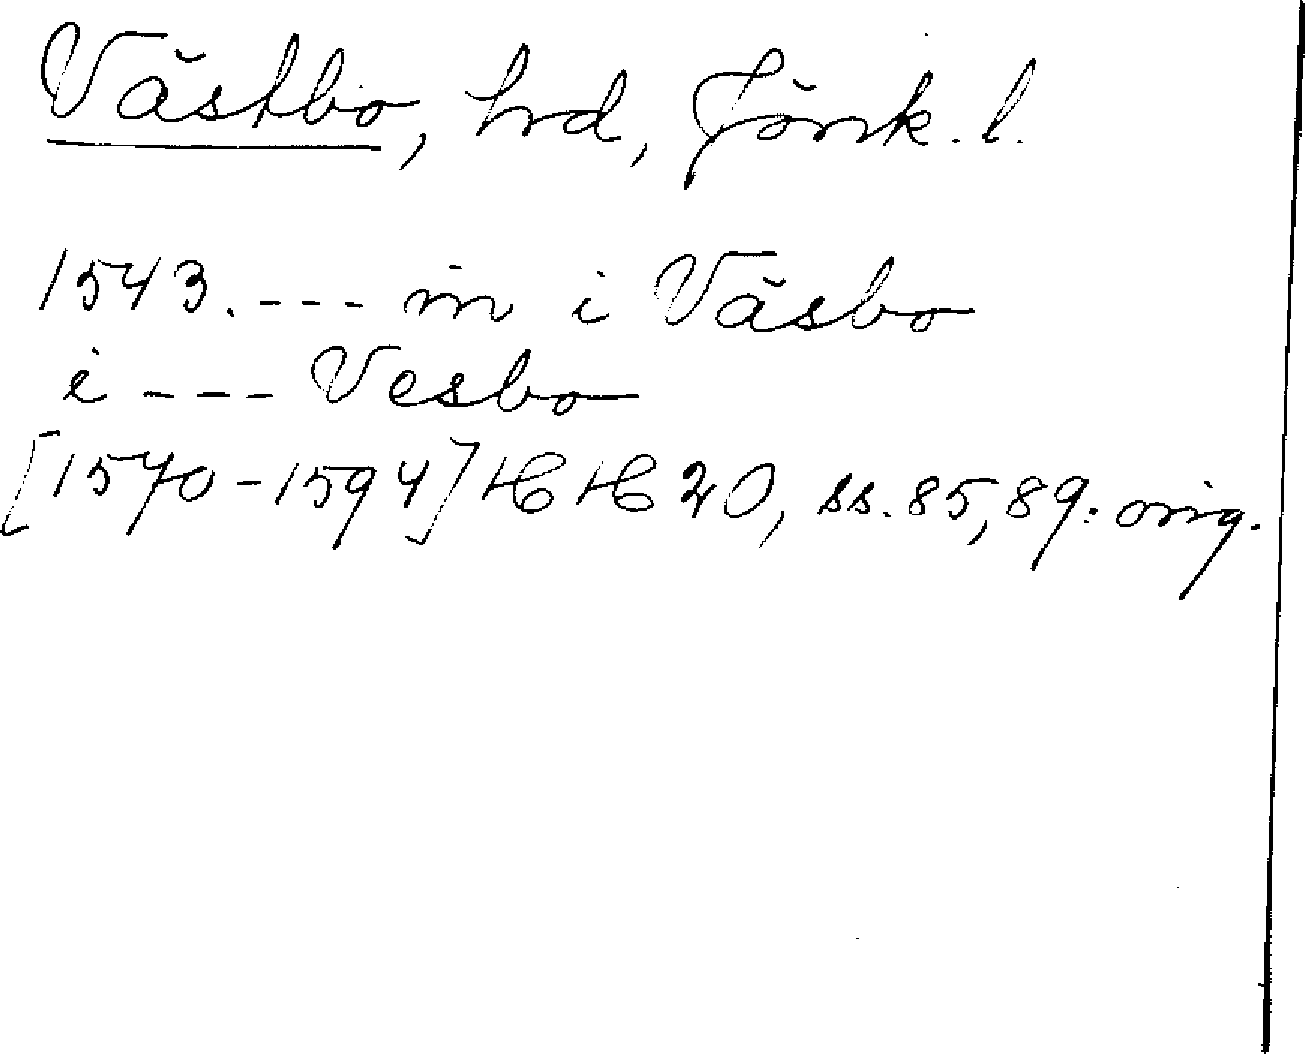 Västbo, hrd, Jönk. l.
1543. --- in i Väsbo
i --- Vesbo
[1570-1594] HH 20, ss. 85, 89: orig.